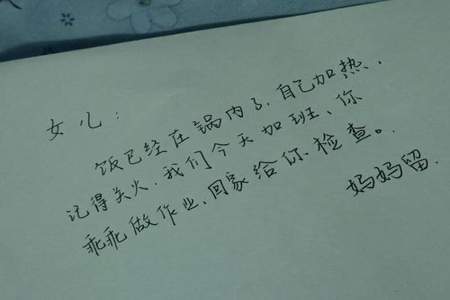 女儿：
饭已经在锅内了.自己加热.
记得关火.我们今天加班、你
乖乖做作业.回家给你检查。
妈妈留.